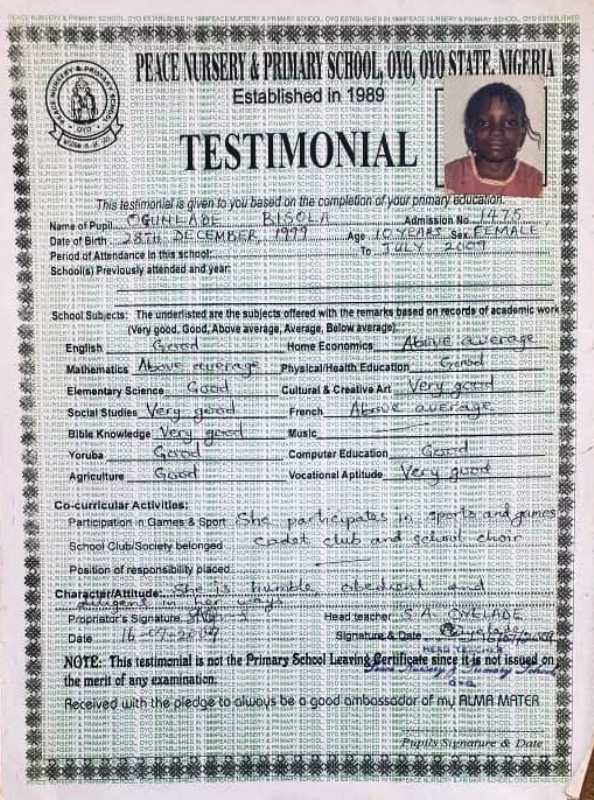 PEACE NURSERY & PRIMARY SCHOOL, OYO, OYO STATE, NIGERIA
Established in 1989
PEACE NURSERY & PRIMARY SCHOOL
OYO
TESTIMONIAL
This testimonial is given to you based on the completion of your primary education.
Name of Pupil OGUNLADE BISOLA Admission No. 1475
Date of Birth 28TH DECEMBER, 1999 Age 10 YEARS Sex FEMALE
Period of Attendance in this school: To JULY 2009
School(s) Previously attended and year:
School Subjects: The underlisted are the subjects offered with the remarks based on records of academic work
(Very good, Good, Above average, Average, Below average).
English Good Home Economics Above average
Mathematics Above average Physical/Health Education Good
Elementary Science Good Cultural & Creative Art Very good
Social Studies Very good French Above average
Bible Knowledge Very good Music
Yoruba Good Computer Education Good
Agriculture Good Vocational Aptitude Very good
Co-curricular Activities:
Participation in Games & Sport She participates in sports and games
School Club/Society belonged cadet club and school choir
Position of responsibility placed
Character/Attitude: She is humble, obedient and
diligent in her ways
Proprietor's Signature Head teacher S. A. OYELADE
Date 16-07-2009 Signature & Date
HEAD TEACHER
NOTE: This testimonial is not the Primary School Leaving Certificate since it is not issued on
the merit of any examination.
Received with the pledge to always be a good ambassador of my ALMA MATER
Pupils Signature & Date